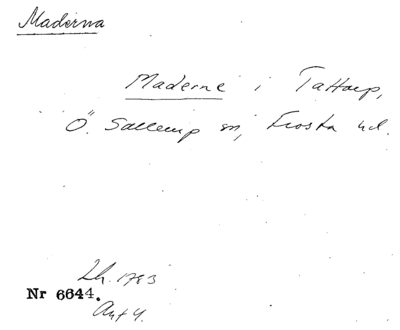 Maderna
Maderne i Tattarp,
Ö. Sallerup sn, Frosta hd.
Lh. 1783
Nr 6644.
Avt 4.